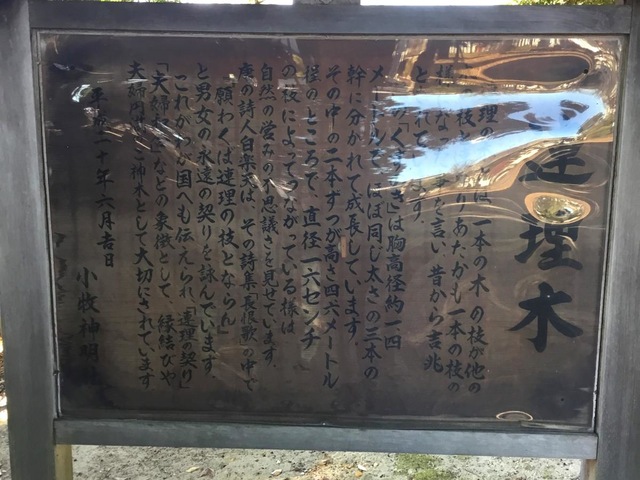 連理木
理の 、一本の木の枝が他の
枝と あたかも一本の枝の
様 を言い、昔から吉兆
と れて ます。
の「くすのき」は胸高径約一四
メートルで、ほぼ同じ太さの三本の
幹に分かれて成長しています。
その中、二本ずつが高さ四六メートル
径のところで、直径一六センチ
の枝によってつながっている様は
自然の営みの不思議さを見せています。
唐の詩人白楽天は、その詩集「長恨歌」の中で
「願わくは連理の枝とならん」
と男女の永遠の契りを詠んでいます。
これがわが国へも伝えられ、「連理の契り」
「夫婦 などの象徴として、縁結びや
夫婦円満のご神木として大切にされています
平成二十年六月吉日
小牧神明